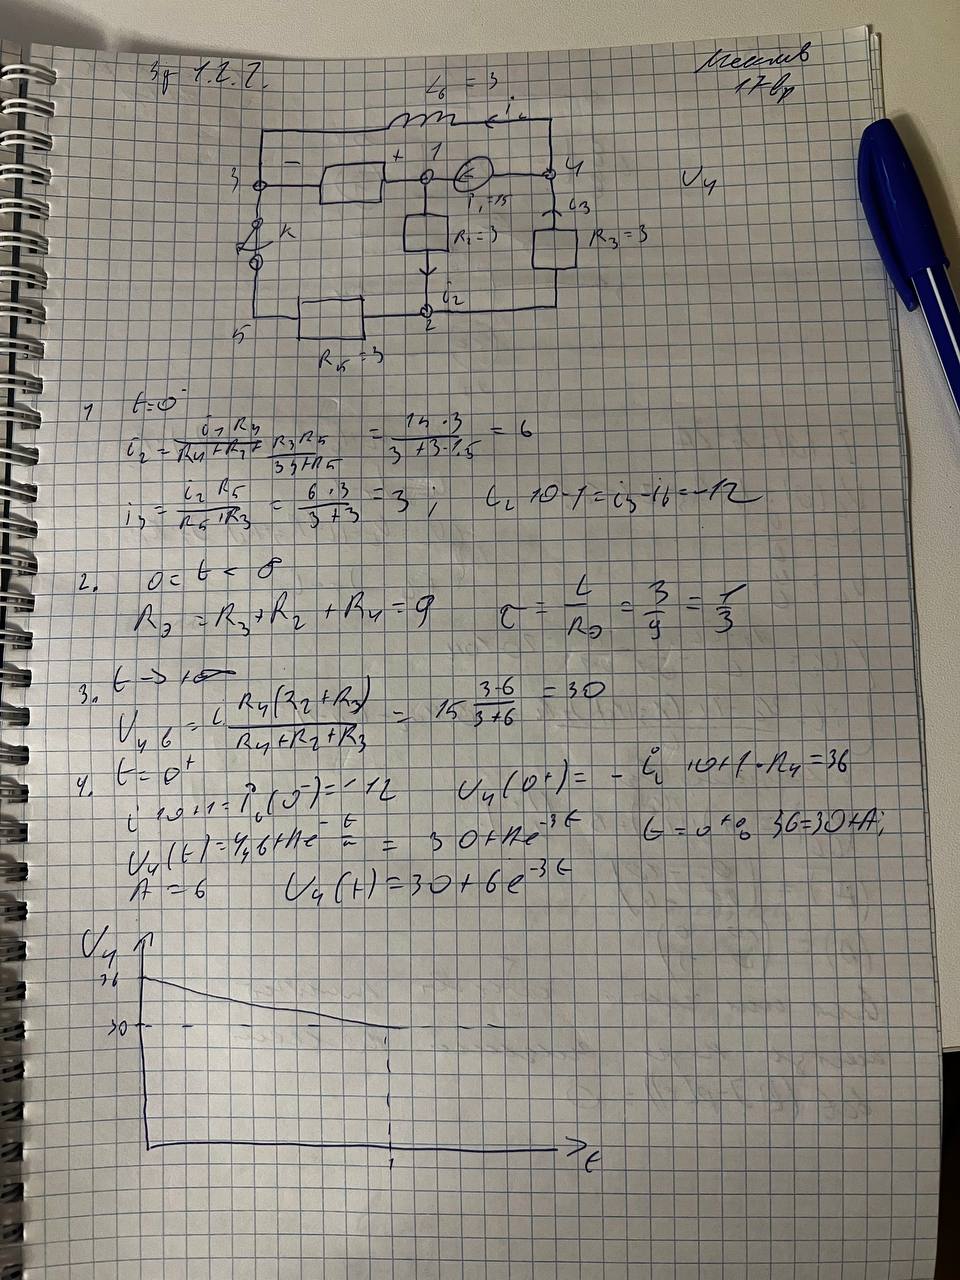 1.2.2.
17вр
L₆ = 3
iL
3
−
+
1
4
U₄
i₁=15
i₃
K
R₂=3
R₃=3
5
i₂
2
R₅=3
1 t=0⁻
i₂ = i₁R₄ / (R₄+R₂+ R₃R₅ / (R₃+R₅)) = 15·3 / (3+3+1.5) = 6
i₃ = i₂R₅ / (R₅+R₃) = 6·3 / (3+3) = 3 ; iL 10-1 = i₃-i₆ = -12
2. 0 < t < ∞
Rэ = R₃+R₂+R₄ = 9 τ = L / Rэ = 3 / 9 = 1 / 3
3. t → +∞
U₄ в = i R₄(R₂+R₃) / (R₄+R₂+R₃) = 15 3·6 / (3+6) = 30
4. t = 0⁺
i 10+1 = i₆(0⁻) = -12 U₄(0+) = - iL 10+1·R₄ = 36
U₄(t) = U₄в+Ae^(-t/τ) = 30+Ae^(-3t) t = 0⁺: 36=30+A;
A = 6 U₄(t) = 30+6e^(-3t)
U₄
36
30
1
t